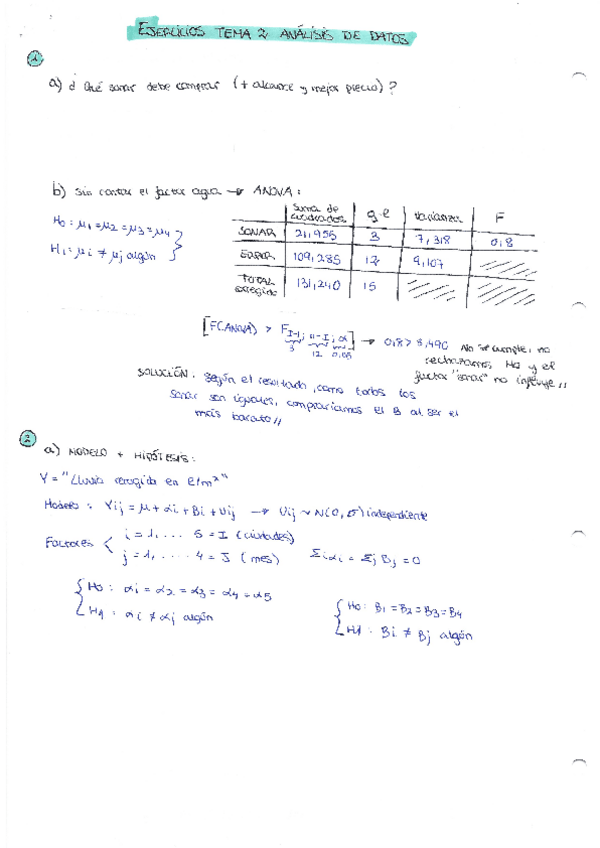 EJERCICIOS TEMA 2 ANÁLISIS DE DATOS
1
a) ¿ Qué sonar debe comprar (+ alcance y mejor precio) ?
b) Sin contar el factor agua → ANOVA :
H0 : μ1 = μ2 = μ3 = μ4
H1 : μi ≠ μj algún
Suma de cuadrados g.l Varianzas F
SONAR 21,955 3 7,318 0,8
ERROR 109,285 12 9,107
TOTAL corregido 131,240 15
[F(ANOVA) > F I-1; n-I; α] → 0,8 > 3,490 No se cumple, no
3 12 0,05
rechazamos H0 y el
factor "sonar" no influye //
SOLUCIÓN. Según el resultado, como todos los
sonar son iguales, compraríamos el B al ser el
más barato //
2
a) MODELO + HIPÓTESIS :
Y = "Lluvia recogida en l/m²"
Modelo : Yij = μ + αi + Bj + Uij → Uij ~ N(0, σ) independiente
Factores i = 1, .... 5 = I (ciudades)
j = 1, .... 4 = J (mes) Σi αi = Σj Bj = 0
H0 : αi = α2 = α3 = α4 = α5
H1 : αi ≠ αj algún
H0 : B1 = B2 = B3 = B4
H1 : Bi ≠ Bj algún